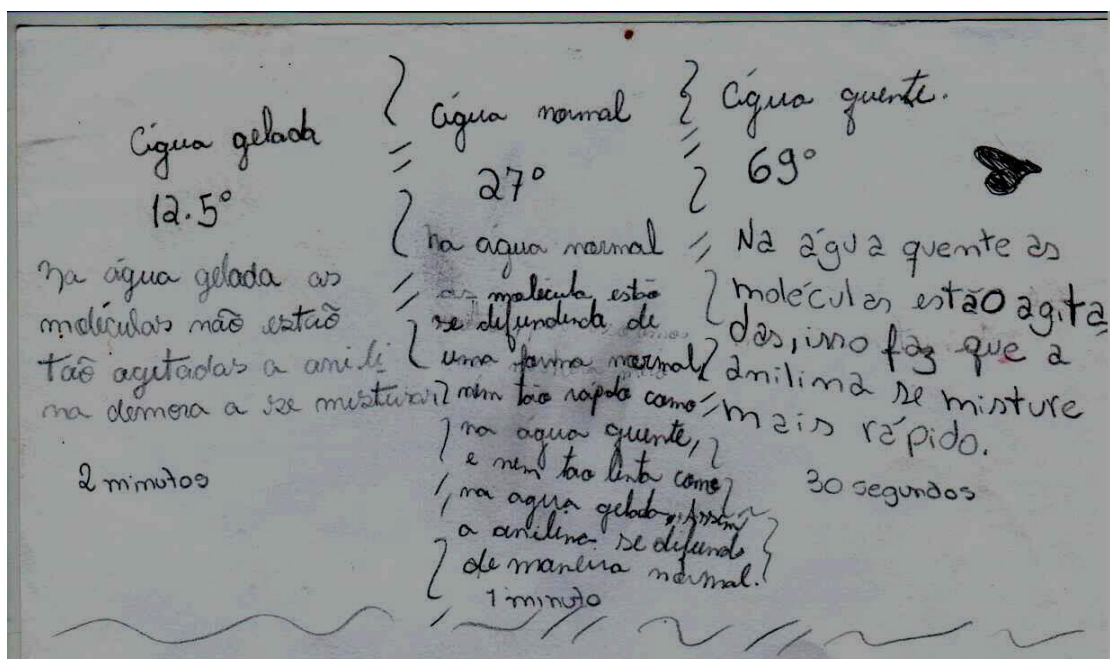 água gelada
12.5°
na água gelada as
moléculas não estão
tão agitadas a anili
na demora a se misturar
2 minutos
água normal
27°
na água normal
as molécula estão
se difundindo de
uma forma normal
nem tão rápido como
na água quente,
e nem tao lenta como
na agua gelada, Assim
a anilina se difunde
de maneira normal.
1 minuto
água quente.
69°
Na água quente as
moléculas estão agita
das, isso faz que a
anilima se misture
mais rápido.
30 segundos